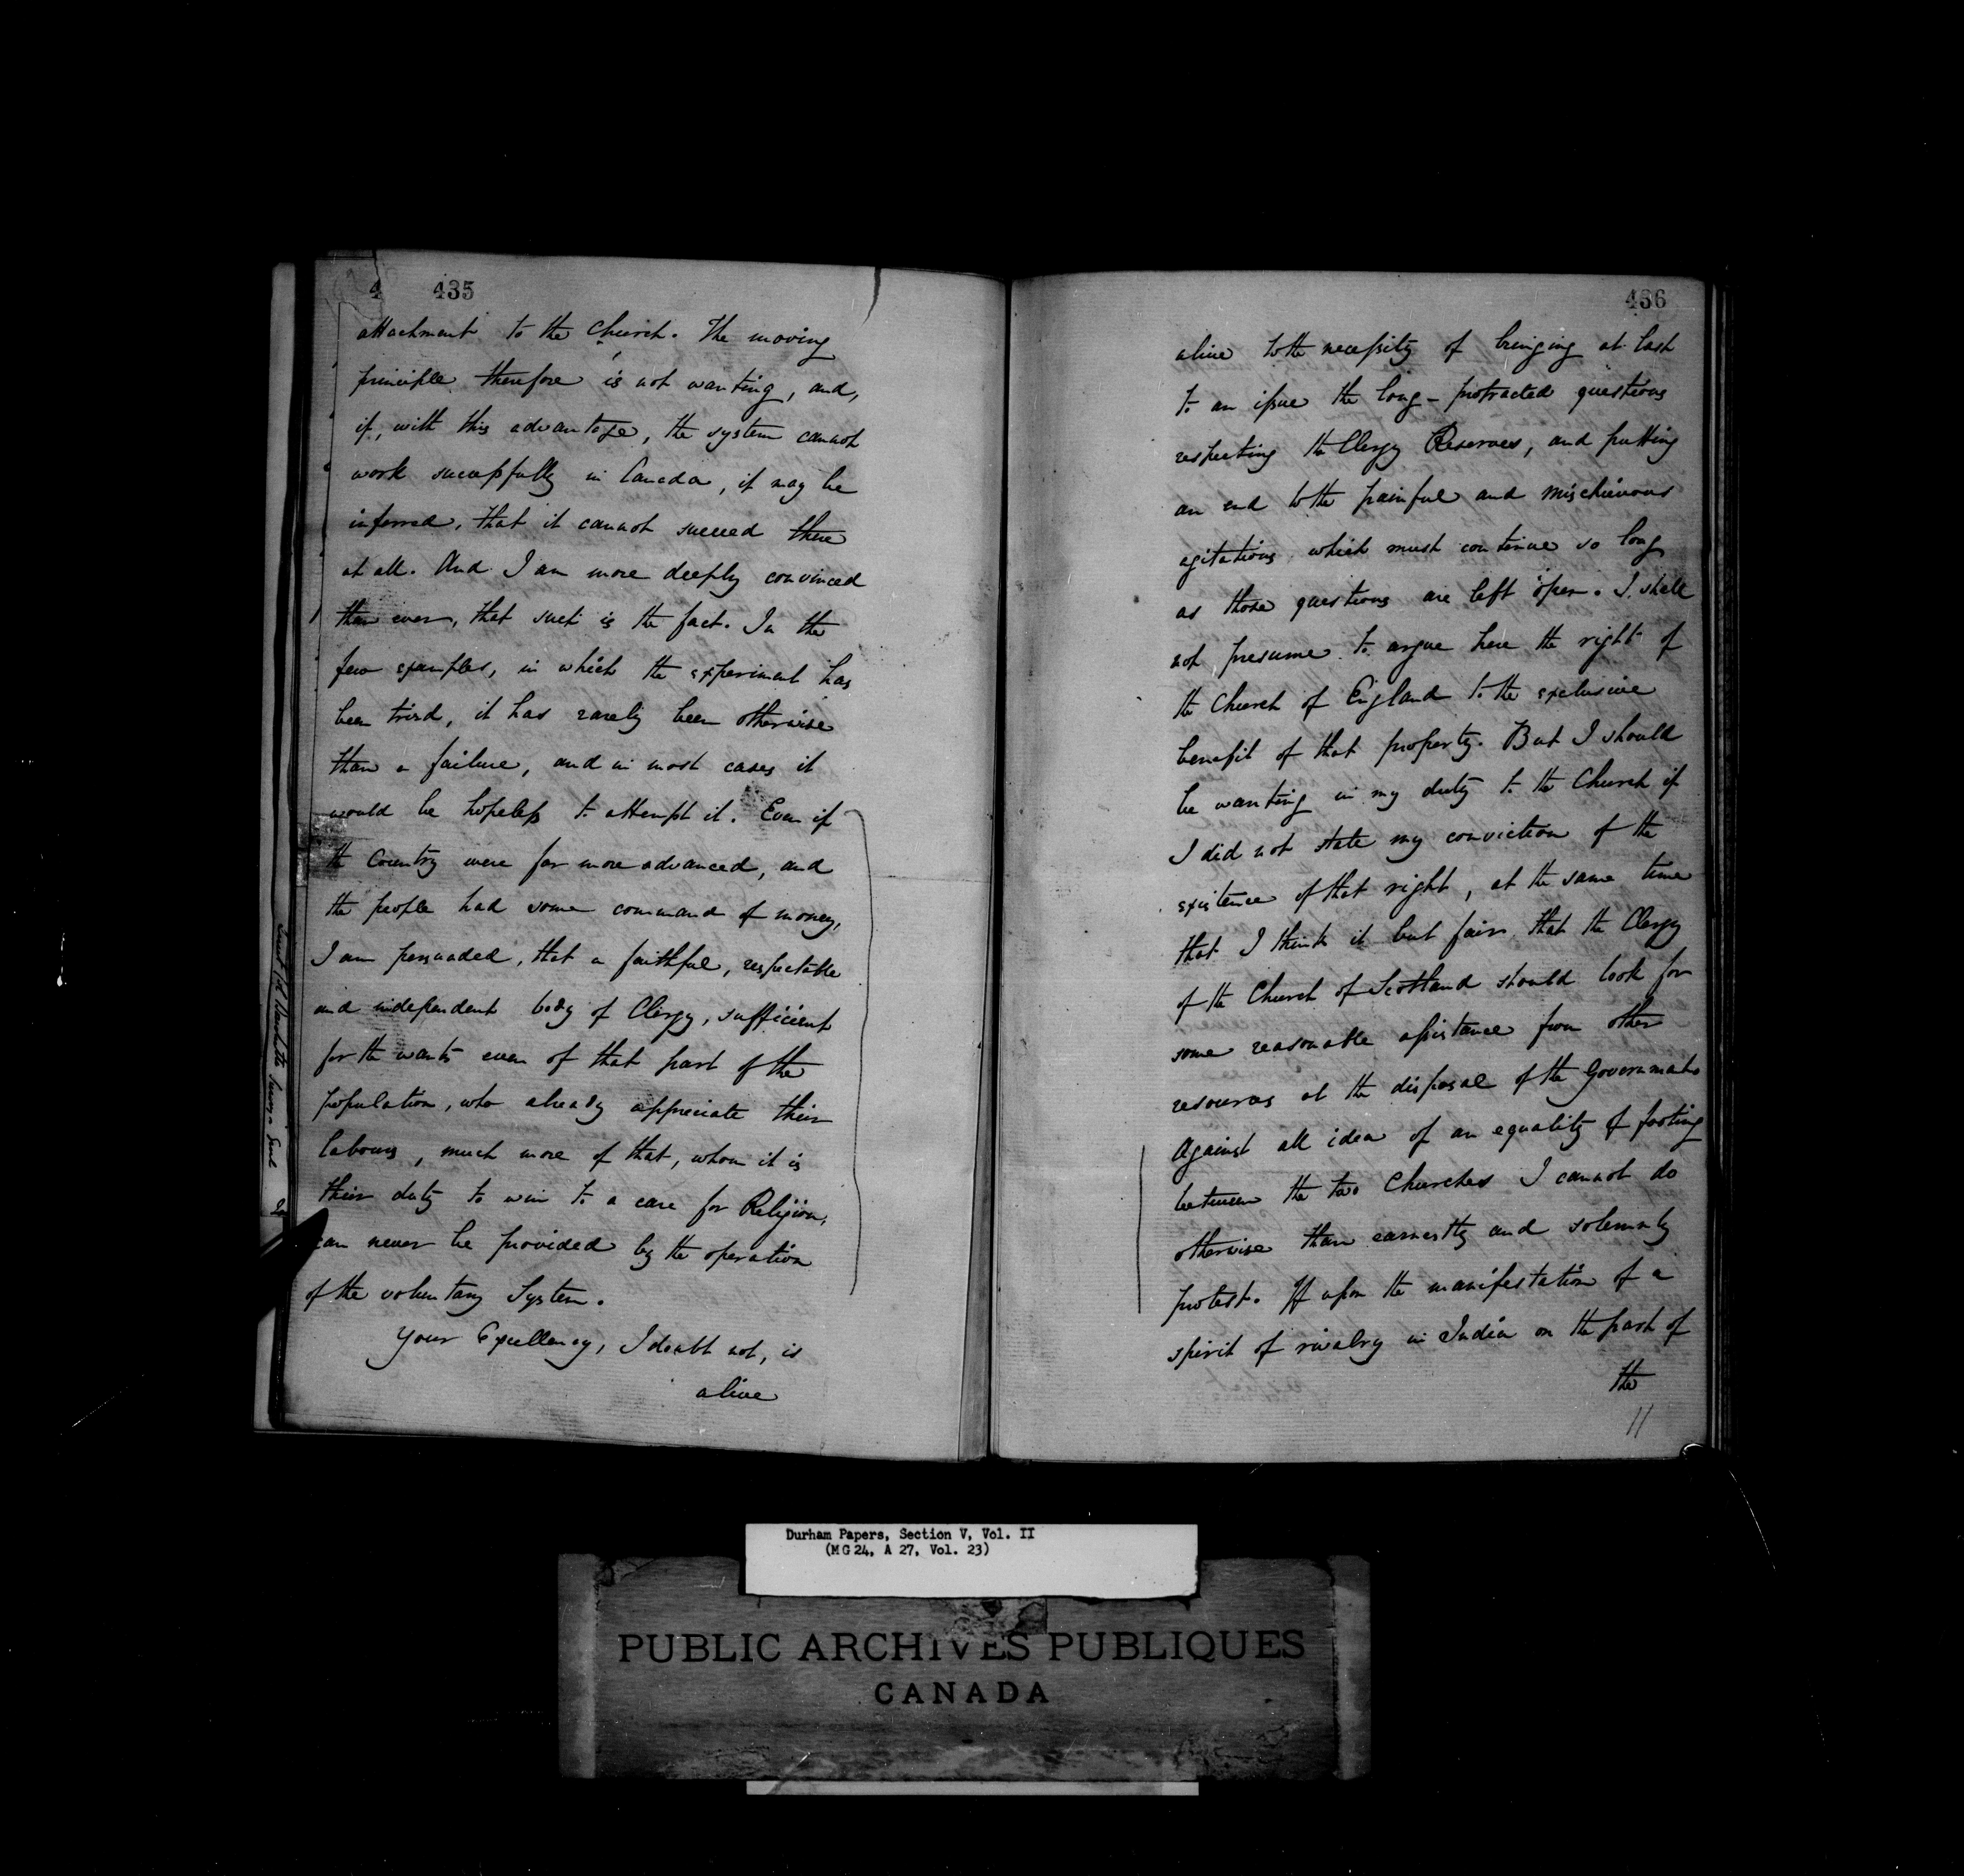 4 435
attachment to the Church. The moving
principle therefore is not wanting, and,
if, with this advantage, the system cannot
work successfully in Canada, it may be
inferred, that it cannot succeed there
at all. And I am more deeply convinced
than ever, that such is the fact. In the
few examples, in which the experiment has
been tried, it has rarely been otherwise
than a failure, and in most cases it
would be hopeless to attempt it. Even if
the Country were far more advanced, and
the people had some command of money,
I am persuaded, that a faithful, respectable
and independent body of Clergy, sufficient
for the wants even of that part of the
population, who already appreciate their
labours, much more of that, whom it is
their duty to win to a care for Religion,
can never be provided by the operation
of the voluntary System.
Your Excellency, I doubt not, is
alive
436
alive to the necessity of bringing at last
to an issue the long-protracted questions
respecting the Clergy Reserves, and putting
an end to the painful and mischievous
agitations which must continue so long
as those questions are left open. I shall
not presume to argue here the right of
the Church of England to the exclusive
benefit of that property. But I should
be wanting in my duty to the Church if
I did not state my conviction of the
existence of that right, at the same time
that I think it but fair that the Clergy
of the Church of Scotland should look for
some reasonable assistance from other
resources at the disposal of the Government
Against all idea of an equality of footing
between the two Churches I cannot do
otherwise than earnestly and solemnly
protest. If upon the manifestation of a
spirit of rivalry in India on the part of
the
11
Durham Papers, Section V, Vol. II
(MG 24, A 27, Vol. 23)
PUBLIC ARCHIVES PUBLIQUES
CANADA